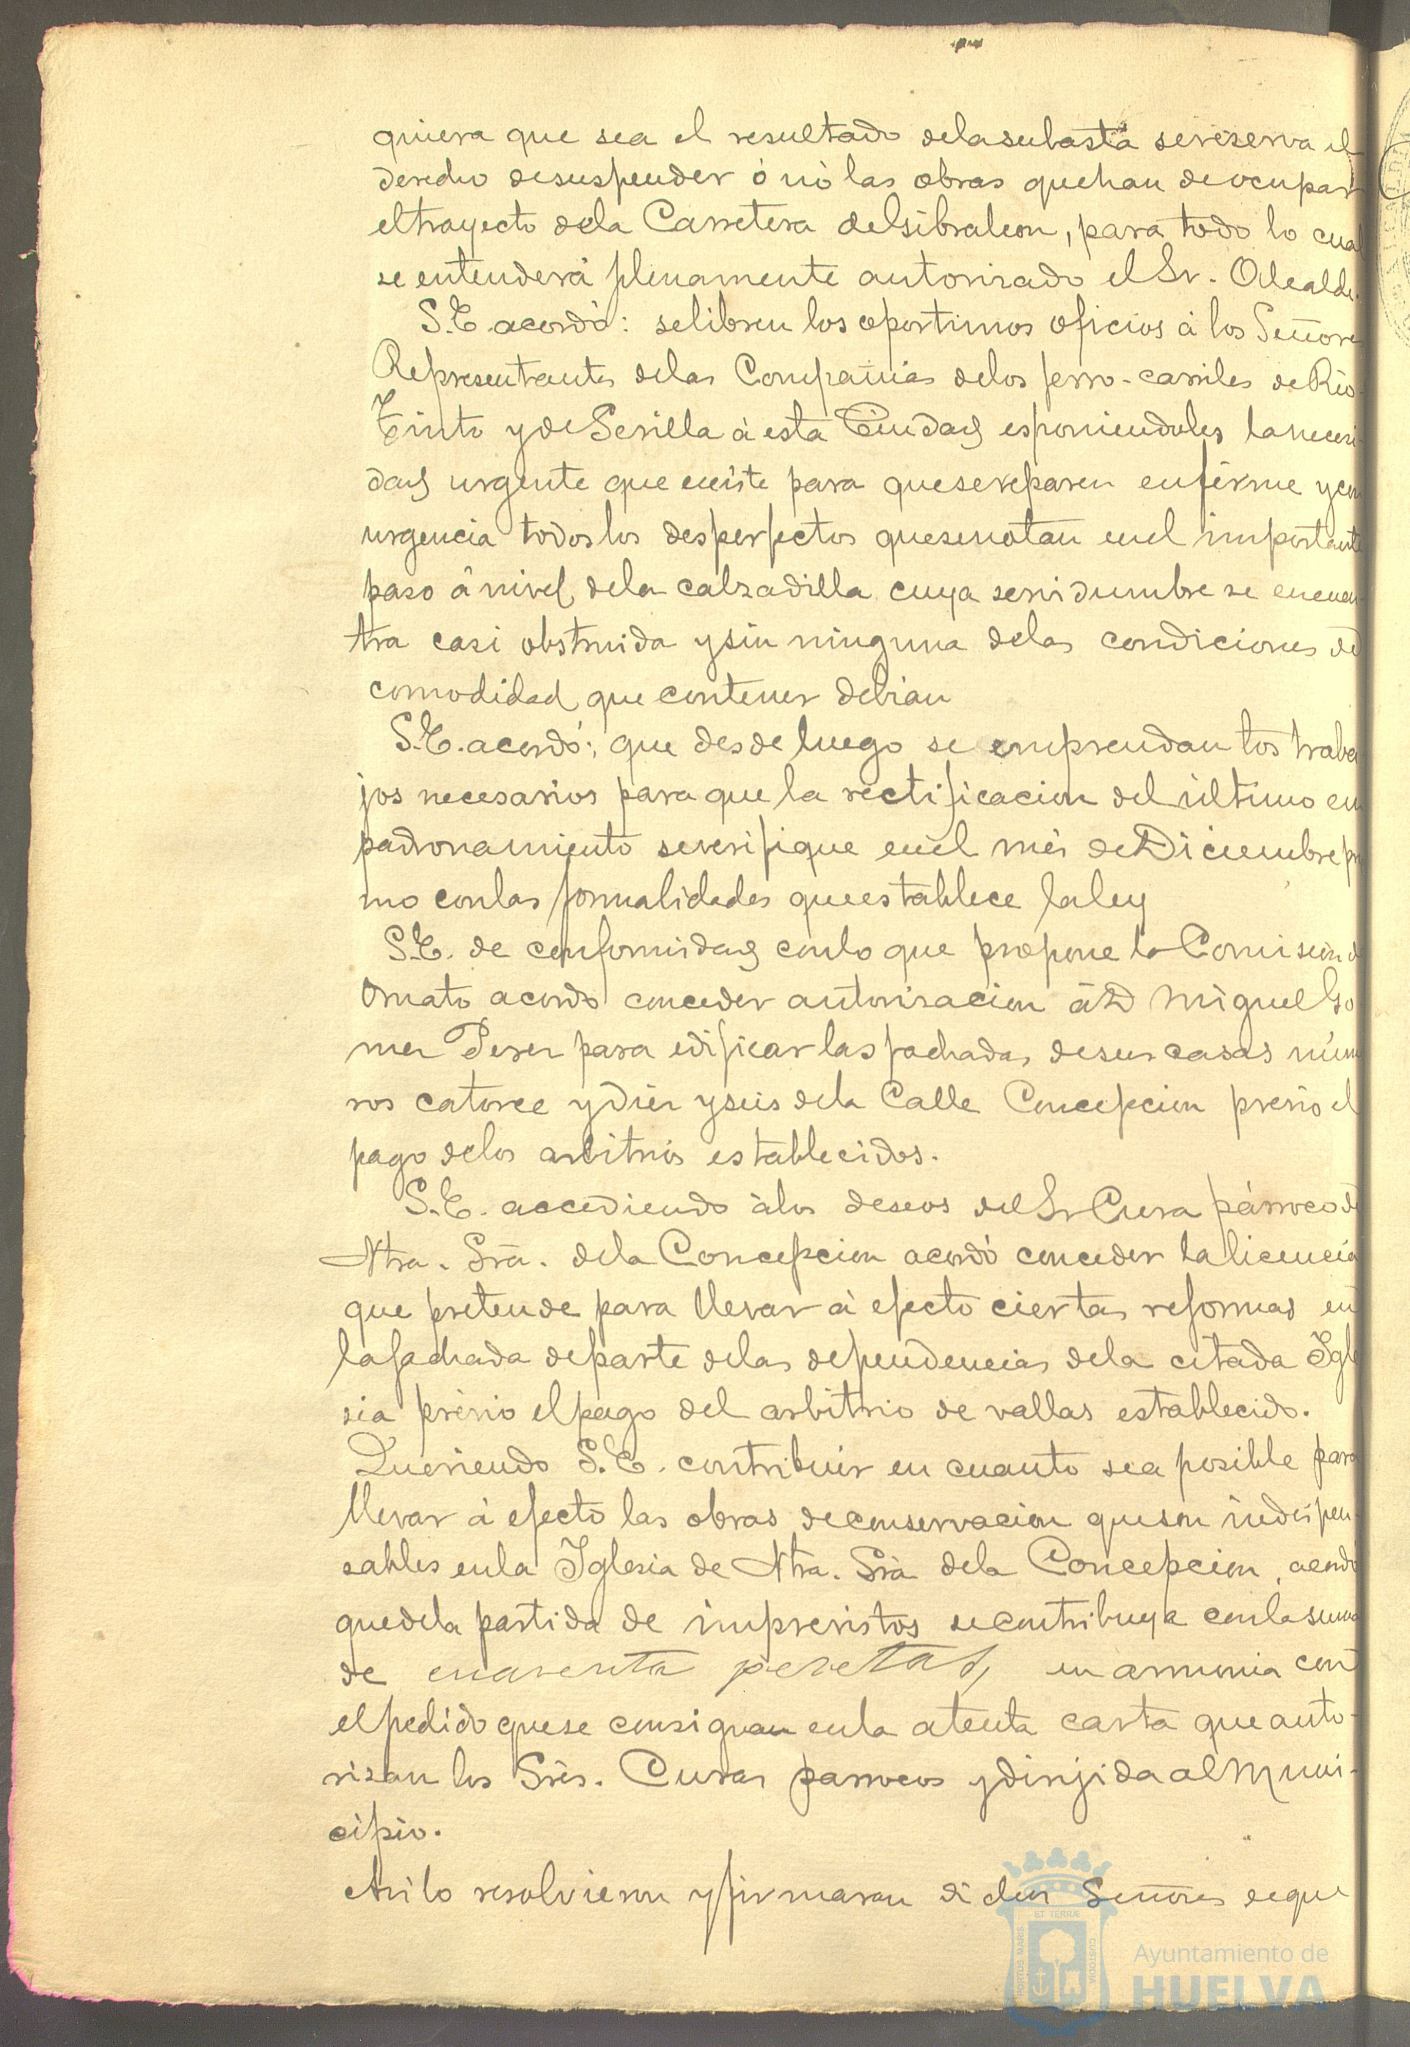 quiera que sea el resultado dela subasta sereserva el
derecho desuspender ó nó las obras quehan deocupar
eltrayecto dela Carretera deGibraleon, para todo lo cual
se entenderá plenamente autorizado el Sr. Alcalde.
S.E. acordó: selibren los oportunos oficios á los Señores
Representantes delas Compañias delos ferro-carriles de Rio-
Tinto y de Sevilla á esta Ciudad esponiendoles lanecesi-
dad urgente que existe para quesereparen enfirme y con
urgencia todos los desperfectos quesenotan enel importante
paso á nivel dela calzadilla cuya servidumbre se encuen-
tra casi obstruida y sin ninguna delas condiciones de
comodidad que contener debian
S.E. acordó: que desde luego se emprendan los traba
jos necesarios para que la rectificacion del último em
padronamiento severifique enel més de Diciembre pró
mo conlas formalidades queestablece laley
S.E. de conformidad conlo que propone la Comision de
Ornato acordó conceder autorizacion á D Miguel Go
mez Perez para edificar las fachadas desus casas núme
ros catorce y diez y seis dela Calle Concepcion prévio el
pago delos arbitrios establecidos.
S.E. accediendo álos deseos del Sr Cura párroco de
Ntra. Srá. dela Concepcion acordó conceder la licencia
que pretende para llevar á efecto ciertas reformas en
lafachada departe delas dependencias dela citada Igle
sia prévio elpago del arbitrio de vallas establecido.
Queriendo S.E. contribuir en cuanto sea posible para
llevar á efecto las obras deconservacion queson indispen-
sables enla Iglesia de Ntra. Srá dela Concepcion, acordó
quedela partida de imprevistos secontribuya conlasuma
de cuarenta pesetas, en armonia con
elpedido quese consignan enla atenta carta que auto-
rizan los Srés. Curas parrocos y dirijida al Muni-
cipio.
Asi lo resolvieron y firmaran dichos Señores deque
ET TERRÆ
PORTUS MARIS
CUSTODIA
Ayuntamiento de
HUELVA